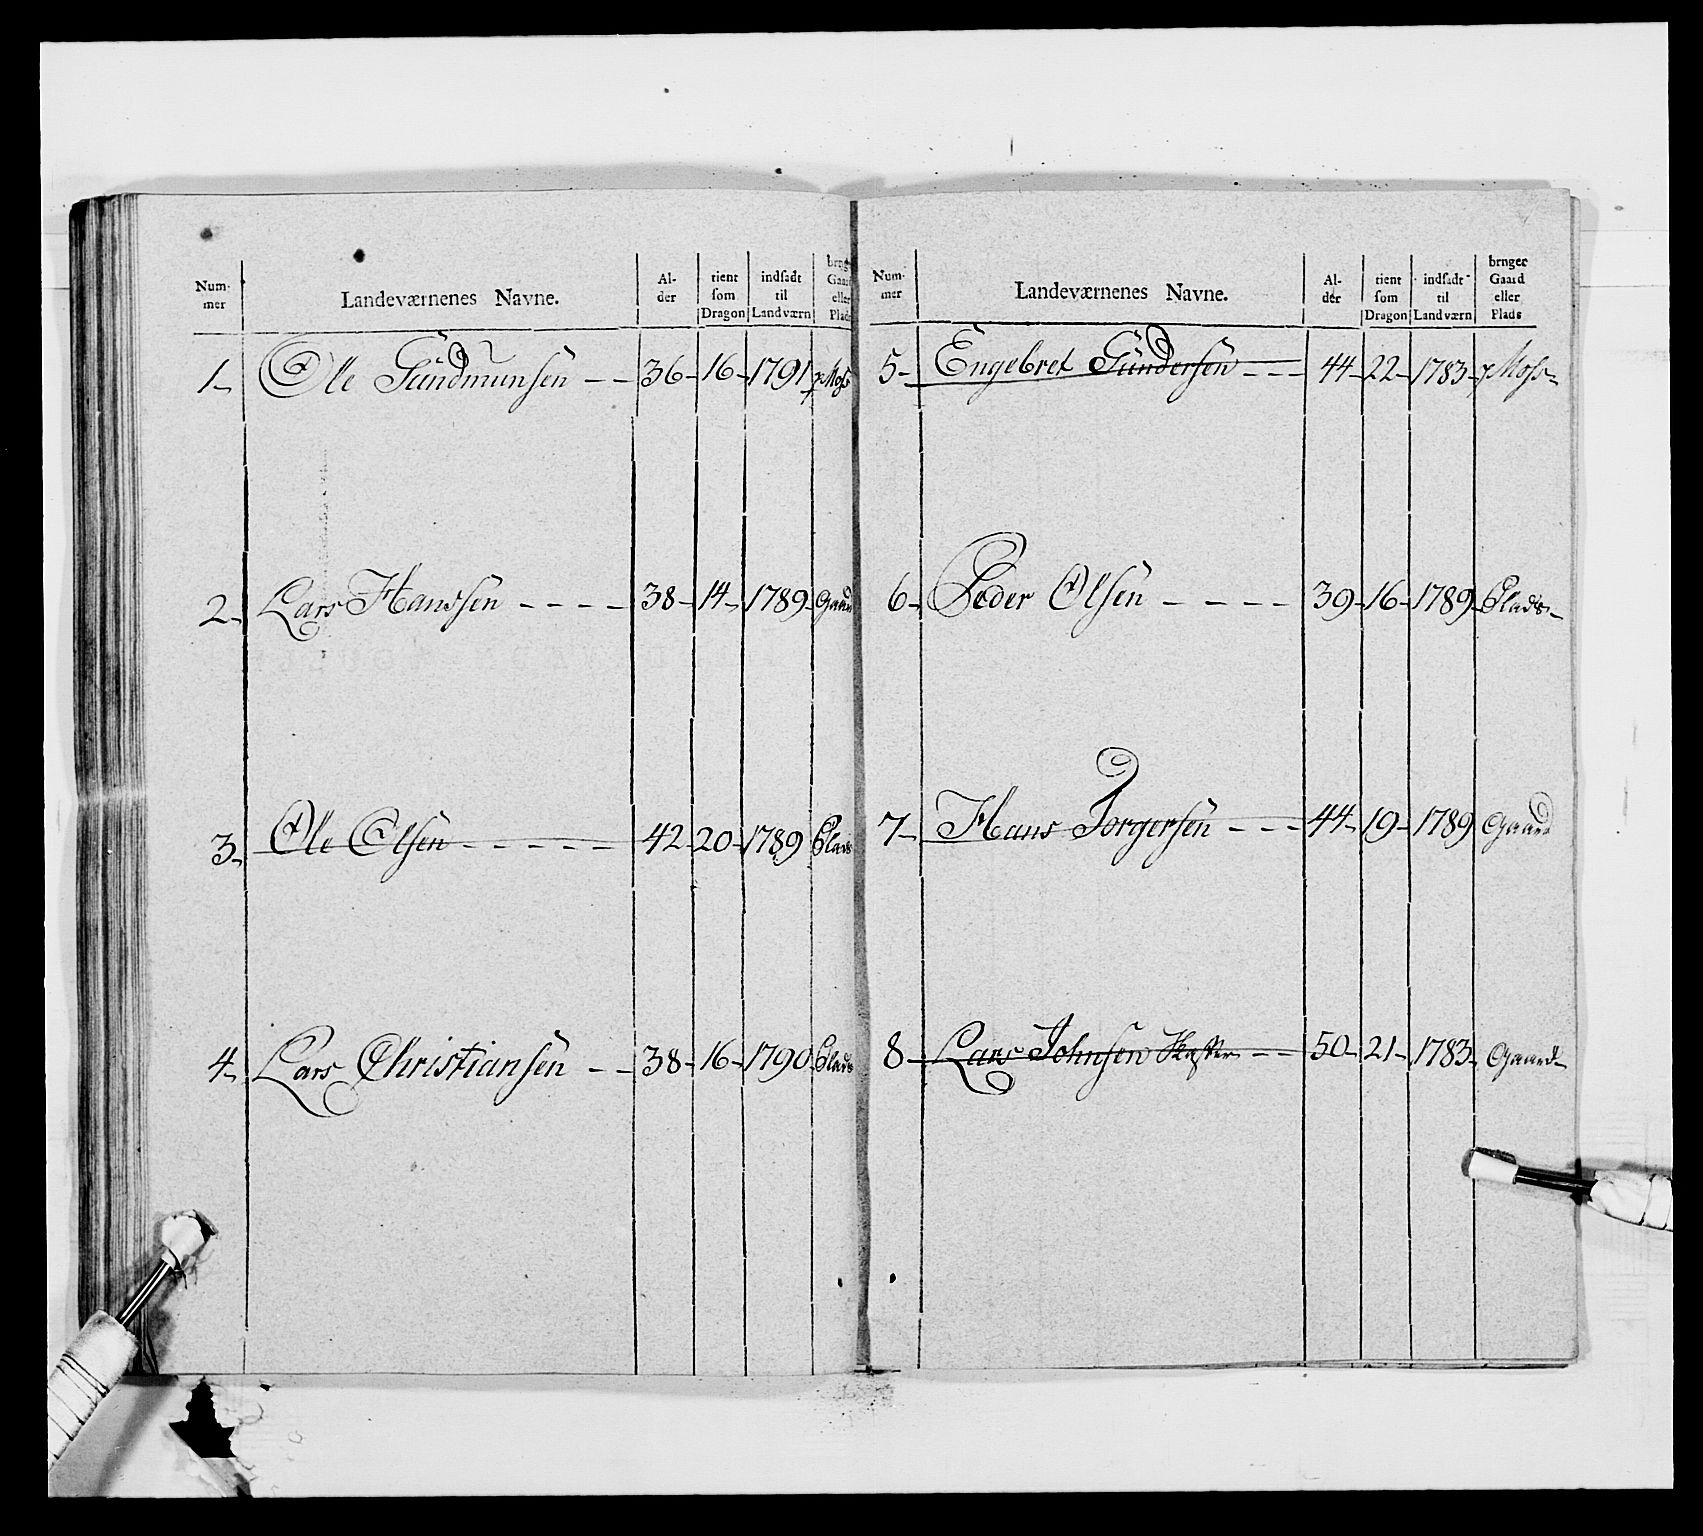 Num- mer Landeværnenes Navne. Al- der tient som Dragon indsadt til Landværn Gaard eller Plads
1- Ole Gündmunsen - - 36- 16- 1791 pMoss
2- Lars Hanssen - - - - 38- 14- 1789- Gaard
3- Ole Olsen - - - - - 42- 20- 1789 Plads
4- Lars Christiansen - - 38- 16- 1790- Plads
Num- mer Landeværnenes Navne. Al- der tient som Dragon indsadt til Landværn bruger Gaard eller Plads
5- Engebret Gündersen - - - 44- 22- 1783- pMoss-
6- Peder Olsen - - - - 39- 16- 1789- Plads-
7- Hans Torgersen - - - 44- 19- 1789 Gaard
8- Lars Johnsen - - 50- 21- 1783- Gaard-